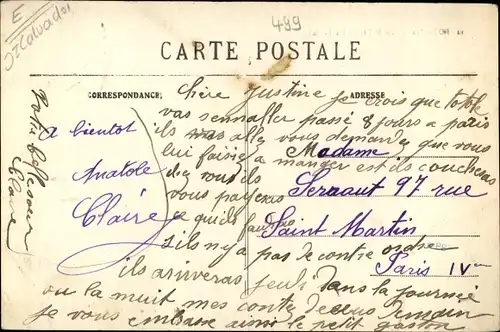 E
Calvados
489
CARTE POSTALE
CORRESPONDANCE
ADRESSE
Chère Justine je crois que totole
vas sennaller passé 8 jours a paris
ils vas allez vous demandez que vous
lui faisiez a manger est ils coucheras
chez vous ils
vous payeras
ce quils
s'ils n'y a pas de contre ordre
ils ariveras jeudi dans la journée
ou la nuit mes contez dessus
je vous embrasse ainsi le petit garson
A bientot
Anatole
Claire
Madame
Serraut 97 rue
Saint Martin
Paris IV